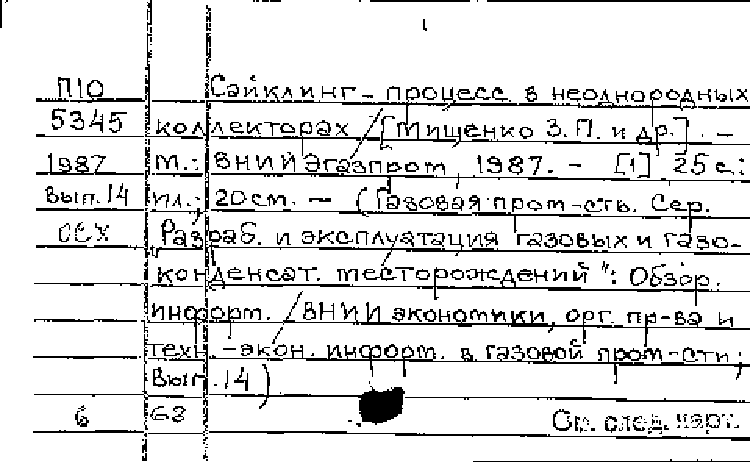 П10 Сайклинг-процесс в неоднородных
5345 коллекторах / [Мищенко З.П. и др.]. -
1987 М.: ВНИИЭгазпром, 1987. - [1] 25 с.:
Вып.14 ил.; 20см. - (Газовая пром-сть. Сер.
ОСХ "Разраб. и эксплуатация газовых и газо-
конденсат. месторождений": Обзор.
информ. / ВНИИ экономики, орг. пр-ва и
техн.-экон. информ. в газовой пром-сти;
Вып. 14)
6 63 Ср. след. карт.